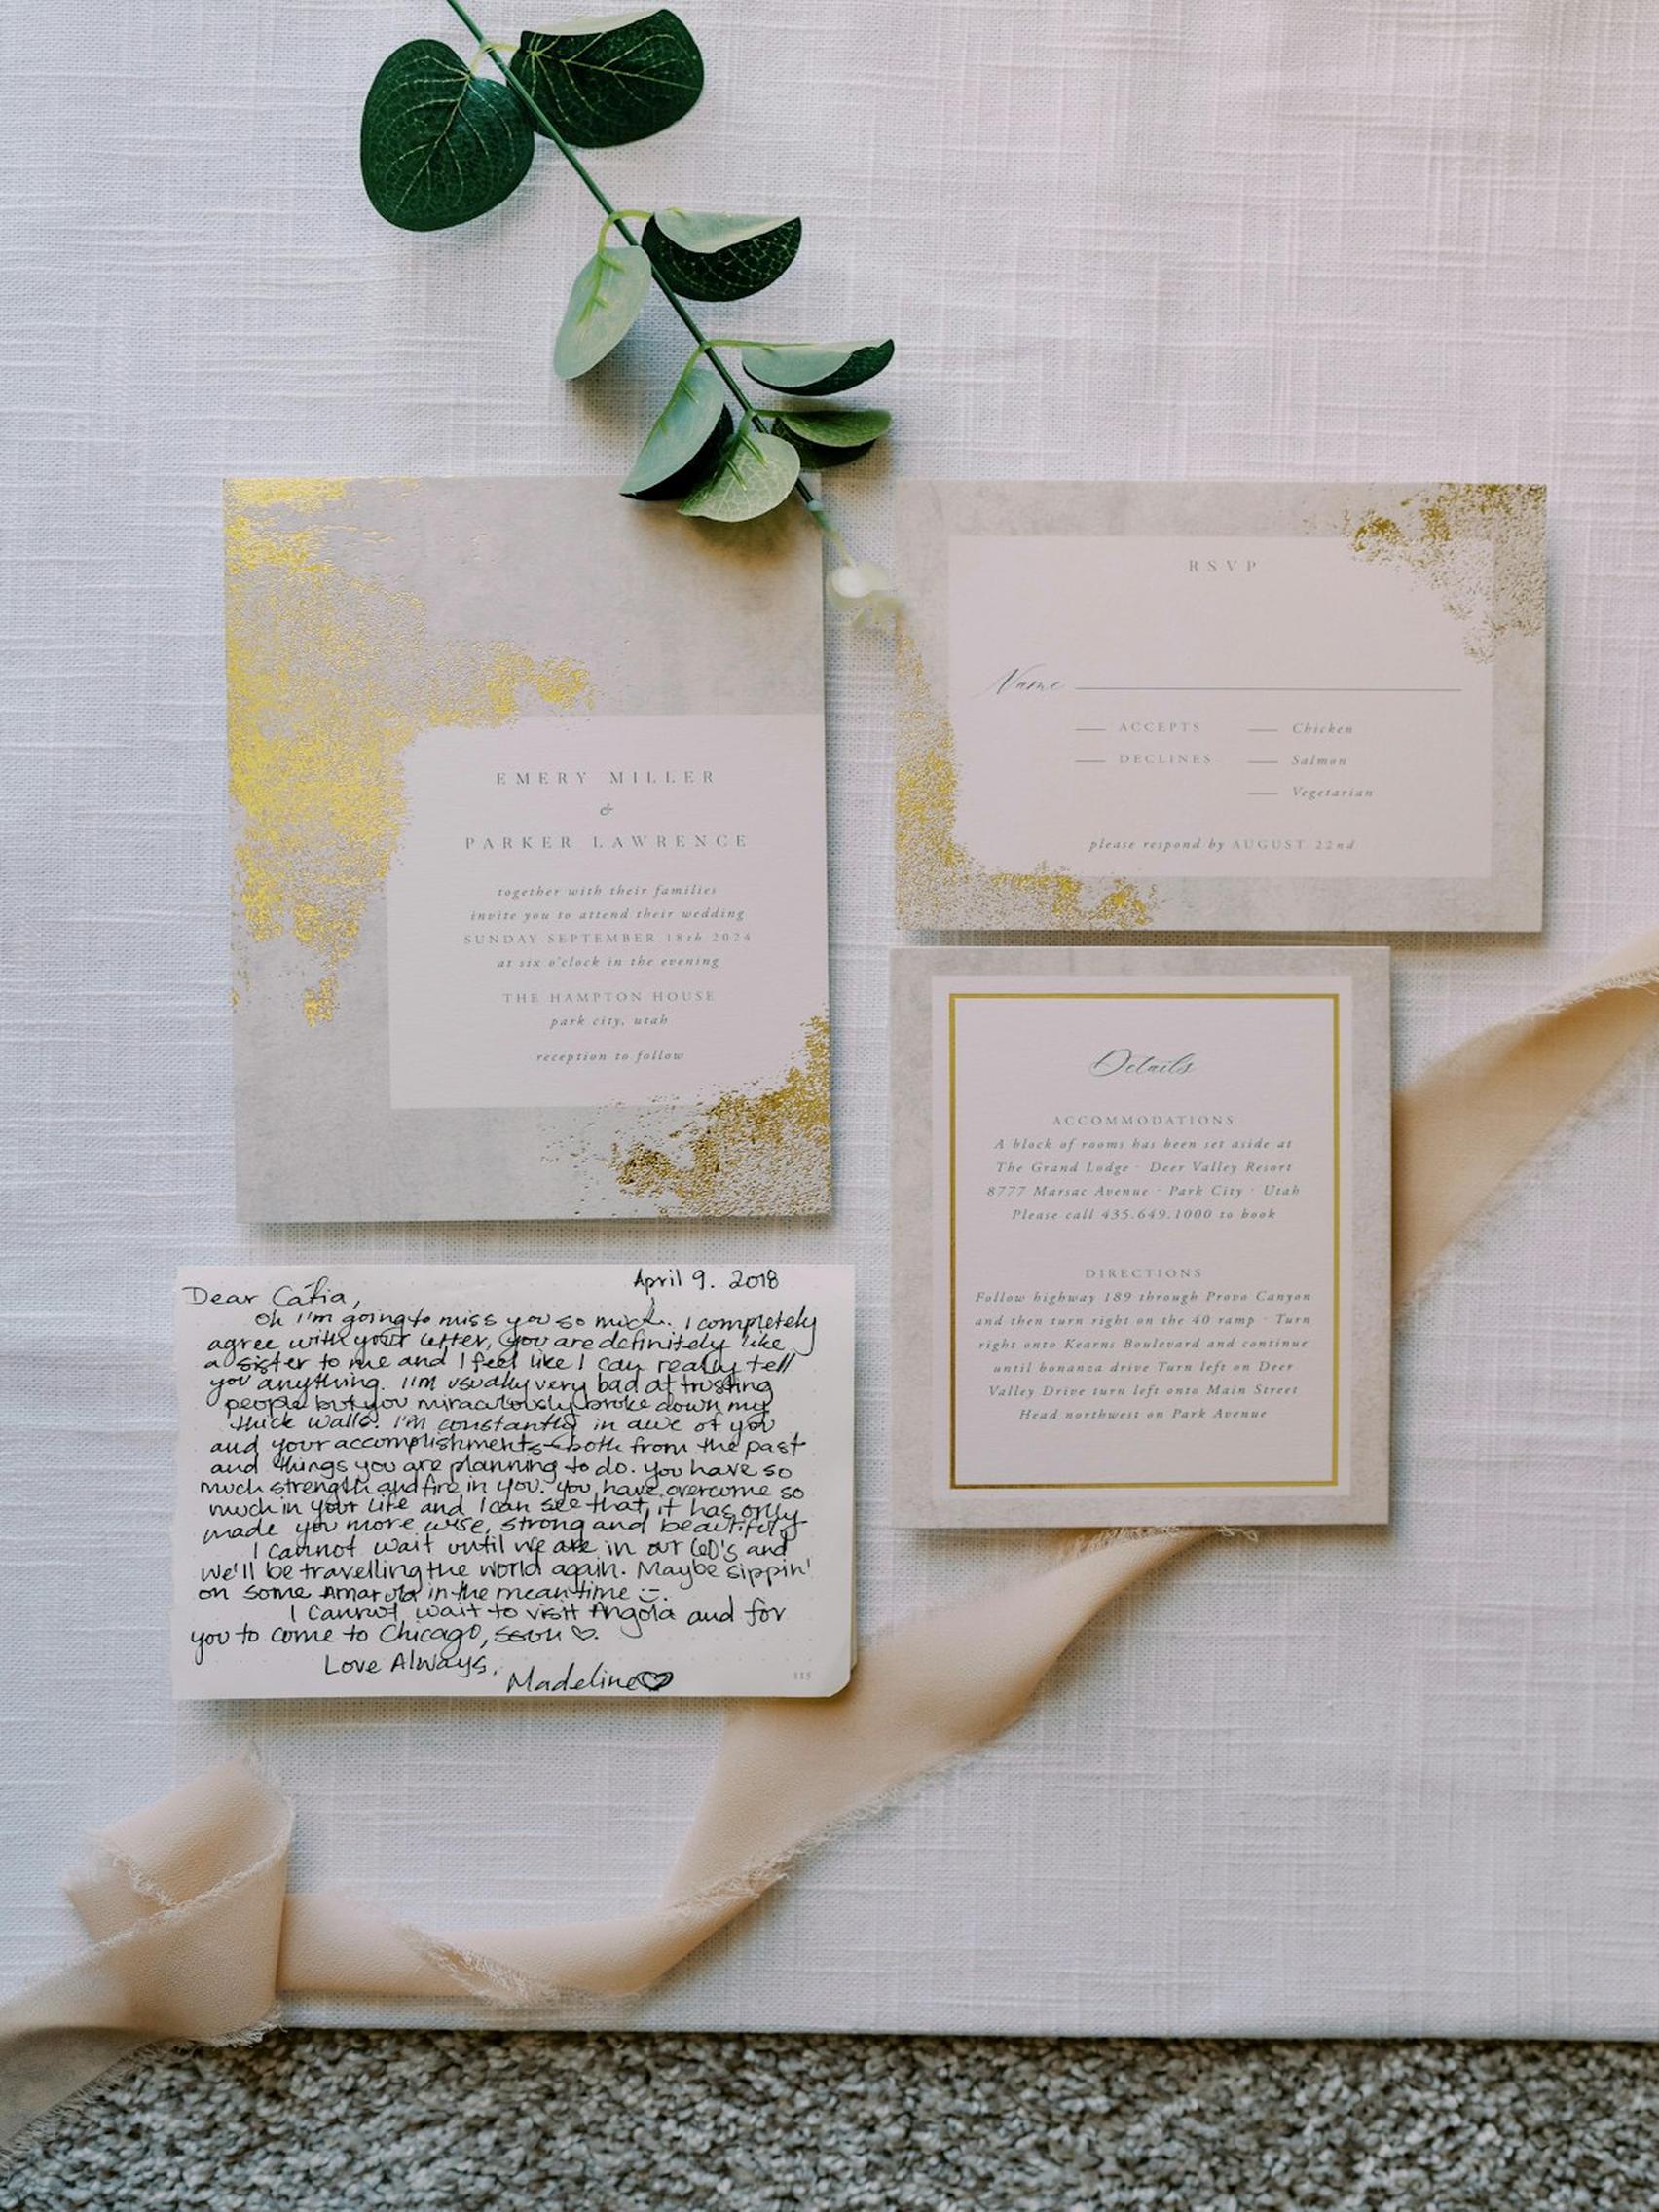 EMERY MILLER
&
PARKER LAWRENCE
together with their families
invite you to attend their wedding
SUNDAY SEPTEMBER 18th 2024
at six o'clock in the evening
THE HAMPTON HOUSE
park city, utah
reception to follow
RSVP
Name
ACCEPTS Chicken
DECLINES Salmon
Vegetarian
please respond by AUGUST 22nd
Details
ACCOMMODATIONS
A block of rooms has been set aside at
The Grand Lodge · Deer Valley Resort
8777 Marsac Avenue · Park City · Utah
Please call 435.649.1000 to book
DIRECTIONS
Follow highway 189 through Provo Canyon
and then turn right on the 40 ramp · Turn
right onto Kearns Boulevard and continue
until bonanza drive Turn left on Deer
Valley Drive turn left onto Main Street
Head northwest on Park Avenue
April 9. 2018
Dear Cátia,
Oh I'm going to miss you so much. I completely
agree with your letter, you are definitely like
a sister to me and I feel like I can really tell
you anything. I'm usually very bad at trusting
people but you miraculously broke down my
thick walls! I'm constantly in awe of you
and your accomplishments—both from the past
and things you are planning to do. You have so
much strength and fire in you. You have overcome so
much in your life and I can see that it has only
made you more wise, strong and beautiful.
I cannot wait until we are in our 60's and
we'll be travelling the world again. Maybe sippin'
on some Amarula in the meantime :-.
I cannot wait to visit Angola and for
you to come to Chicago, soon ♡.
Love Always,
Madeline♡
115